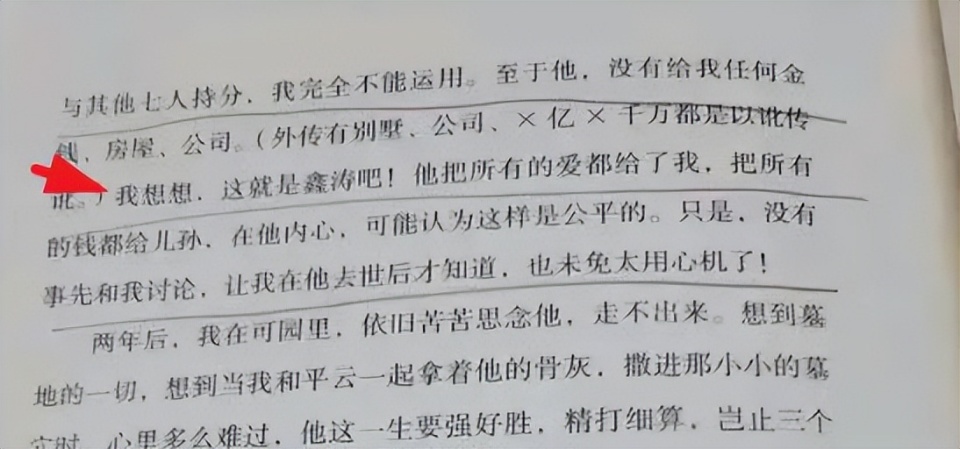 与其他七人持分，我完全不能运用。至于他，没有给我任何金
钱、房屋、公司。（外传有别墅、公司、×亿×千万都是以讹传
讹。）我想想，这就是鑫涛吧！他把所有的爱都给了我，把所有
的钱都给儿孙，在他内心，可能认为这样是公平的。只是，没有
事先和我讨论，让我在他去世后才知道，也未免太用心机了！
两年后，我在可园里，依旧苦苦思念他，走不出来。想到墓
地的一切，想到当我和平云一起拿着他的骨灰，撒进那小小的墓
穴时，心里多么难过，他这一生要强好胜，精打细算，岂止三个